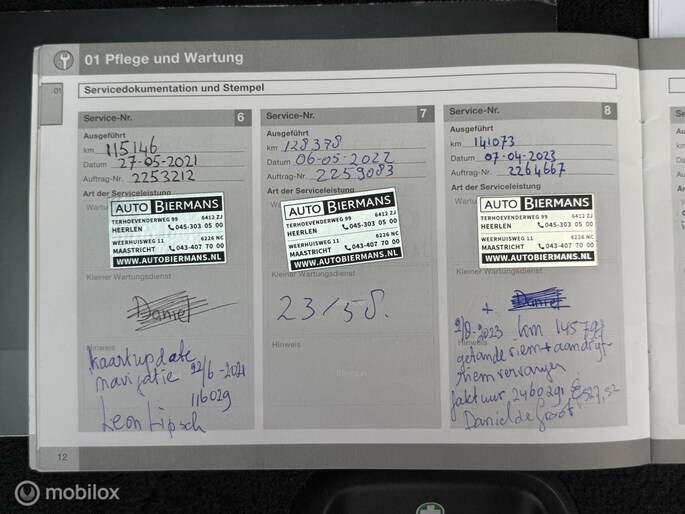 01 Pflege und Wartung
01
Servicedokumentation und Stempel
Service-Nr. 6
Ausgeführt
km 115146
Datum 27-05-2021
Auftrag-Nr. 2253212
Art der Serviceleistung
AUTO BIERMANS
TERHOEVENDERWEG 99 6412 ZJ
HEERLEN 045-303 05 00
WEERHUISWEG 11 6226 NC
MAASTRICHT 043-407 70 00
WWW.AUTOBIERMANS.NL
Kleiner Wartungsdienst
Daniel
Hinweis
kaartupdate
navigatie 22/6-2021
116029
Leon Lipsch
Service-Nr. 7
Ausgeführt
km 128378
Datum 06-05-2022
Auftrag-Nr. 2259083
Art der Serviceleistung
AUTO BIERMANS
TERHOEVENDERWEG 99 6412 ZJ
HEERLEN 045-303 05 00
WEERHUISWEG 11 6226 NC
MAASTRICHT 043-407 70 00
WWW.AUTOBIERMANS.NL
Kleiner Wartungsdienst
Hinweis
Service-Nr. 8
Ausgeführt
km 141073
Datum 07-04-2023
Auftrag-Nr. 2264667
Art der Serviceleistung
AUTO BIERMANS
TERHOEVENDERWEG 99 6412 ZJ
HEERLEN 045-303 05 00
WEERHUISWEG 11 6226 NC
MAASTRICHT 043-407 70 00
WWW.AUTOBIERMANS.NL
Kleiner Wartungsdienst
+ Daniel
Hinweis
km
getande riem + aandrijf-
riem vervangen
faktuur
12
mobilox